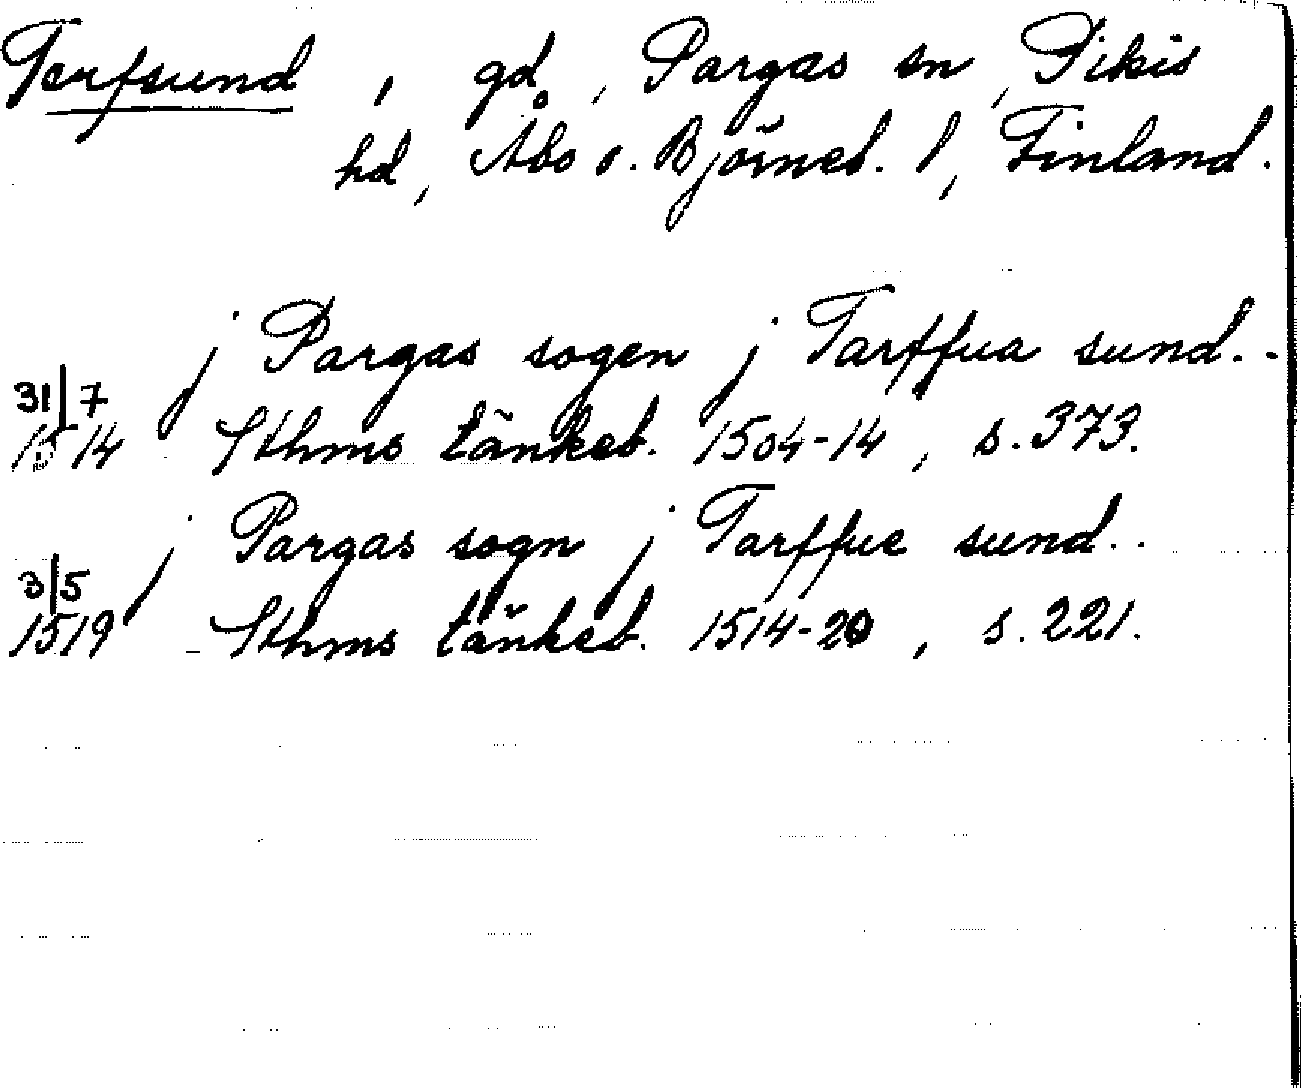 Tarfsund, gd, Pargas sn, Pikis
hd, Åbo o. Björneb. l, Finland.
j Pargas sogen j Tarffua sund..
31/7 1514 Sthms tänkeb. 1504-14, s. 373.
j Pargas sogn j Tarffue sund..
3/5 1519 - Sthms tänkeb. 1514-20, s. 221.